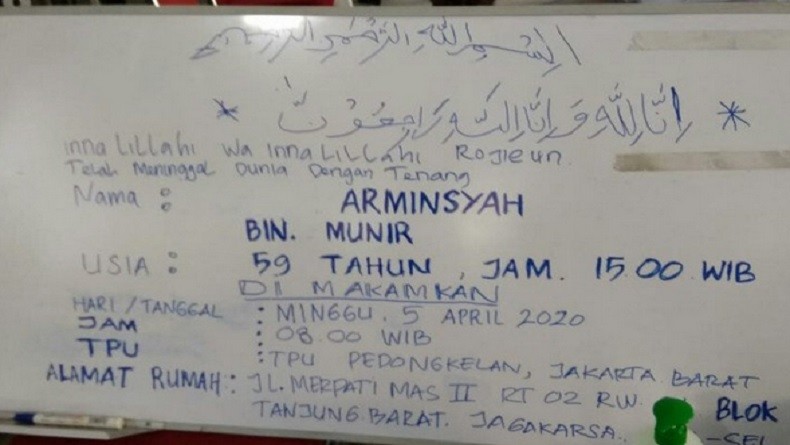 بسم الله الرحمن الرحيم
* إنا لله وإنا إليه راجعون *
inna LiLLahi wa inna LiLLahi Rojieun
Telah Meninggal Dunia Dengan Tenang
Nama : ARMINSYAH
BIN. MUNIR
USIA : 59 TAHUN, JAM. 15.00 WIB
DI MAKAMKAN
HARI/TANGGAL : MINGGU. 5 APRIL 2020
JAM : 08.00 WIB
TPU : TPU PEDONGKELAN, JAKARTA BARAT
ALAMAT RUMAH : JL. MERPATI MAS II RT 02 RW. BLOK
TANJUNG BARAT. JAGAKARSA.. -SEL